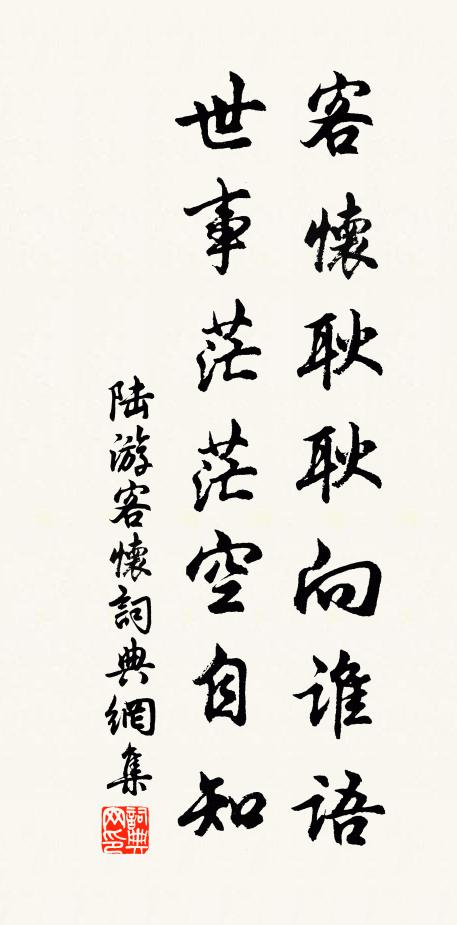 客懷耿耿向誰語
世事茫茫空自知
陸游客懷詞典網集
詞典网印